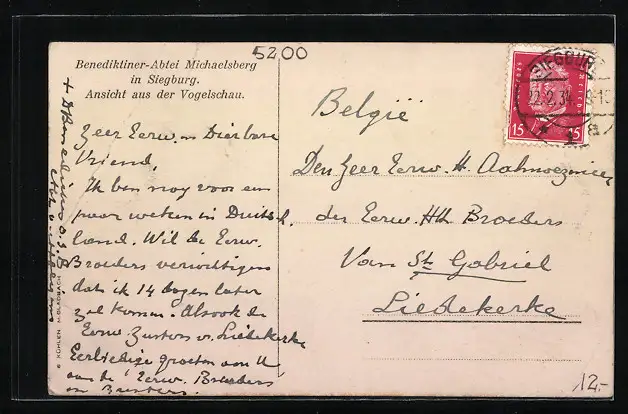 5200
Benediktiner-Abtei Michaelsberg
in Siegburg.
Ansicht aus der Vogelschau.
Zeer Eerw. en Dierbare
Vriend,
Ik ben nog voor een
paar weken in Duitsch-
land. Wil de Eerw.
Broeders verwittigen
dat ik 14 dagen later
zal komen. Alsook de
Eerw. Zusters v. Liedekerke
Eerbiedige groeten aan U
aan de Eerw. Broeders
en Zusters.
© KÜHLEN M.GLADBACH
SIEGBURG
22.2.34
15 15
België
Den Zeer Eerw. H. Aalmoezenier
der Eerw. HH Broeders
Van St Gabriel
Liedekerke
12,-